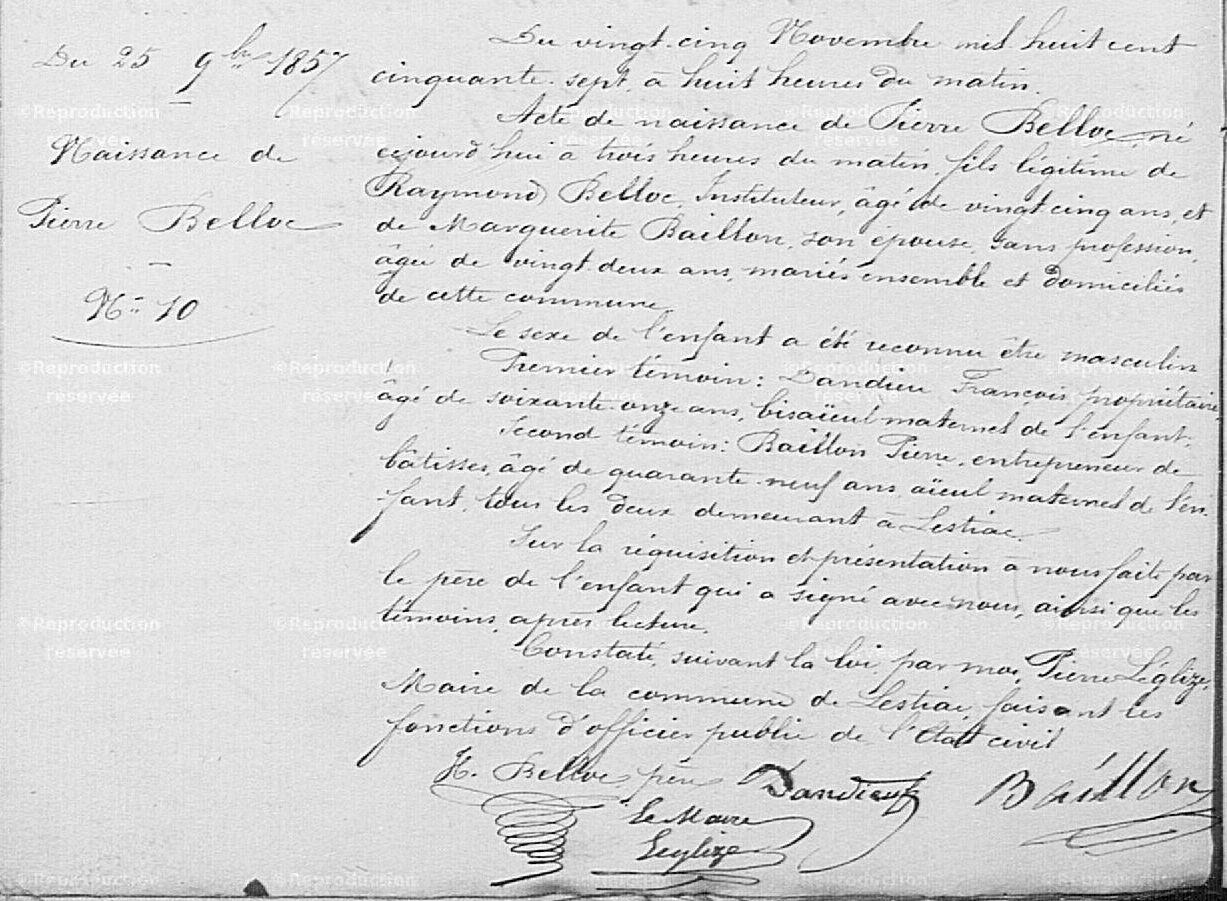 Du 25 9bre 1857
Naissance de
Pierre Belloc
No 10
Du vingt-cinq Novembre mil huit cent
cinquante-sept, à huit heures du matin.
Acte de naissance de Pierre Belloc, né
cejourd'hui à trois heures du matin, fils légitime de
Raymond Belloc, Instituteur, âgé de vingt cinq ans, et
de Marguerite Baillon, son épouse, sans profession,
âgée de vingt-deux ans, mariés ensemble et domiciliés
de cette commune.
Le sexe de l'enfant a été reconnu être masculin
Premier témoin: Dandieu François, propriétaire,
âgé de soixante-onze ans, bisaïeul maternel de l'enfant.
Second témoin: Baillon Pierre, entrepreneur de
bâtisses, âgé de quarante-neuf ans, aïeul maternel de l'en-
fant, tous les deux demeurant à Lestiac.
Sur la réquisition et présentation à nous faite par
le père de l'enfant qui a signé avec nous, ainsi que les
témoins, après lecture.
Constaté, suivant la loi, par moi, Pierre Léglize,
Maire de la commune de Lestiac, faisant les
fonctions d'officier public de l'Etat civil
Belloc père Dandieu Baillon
Le Maire
Leglize
©Reproduction réservée